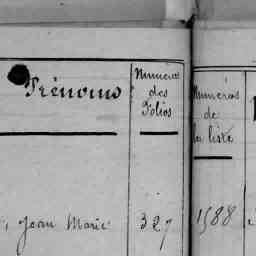 Prénoms
Numéros
des
Folios
Numéros
de
la liste
Jean Marie
327
1588